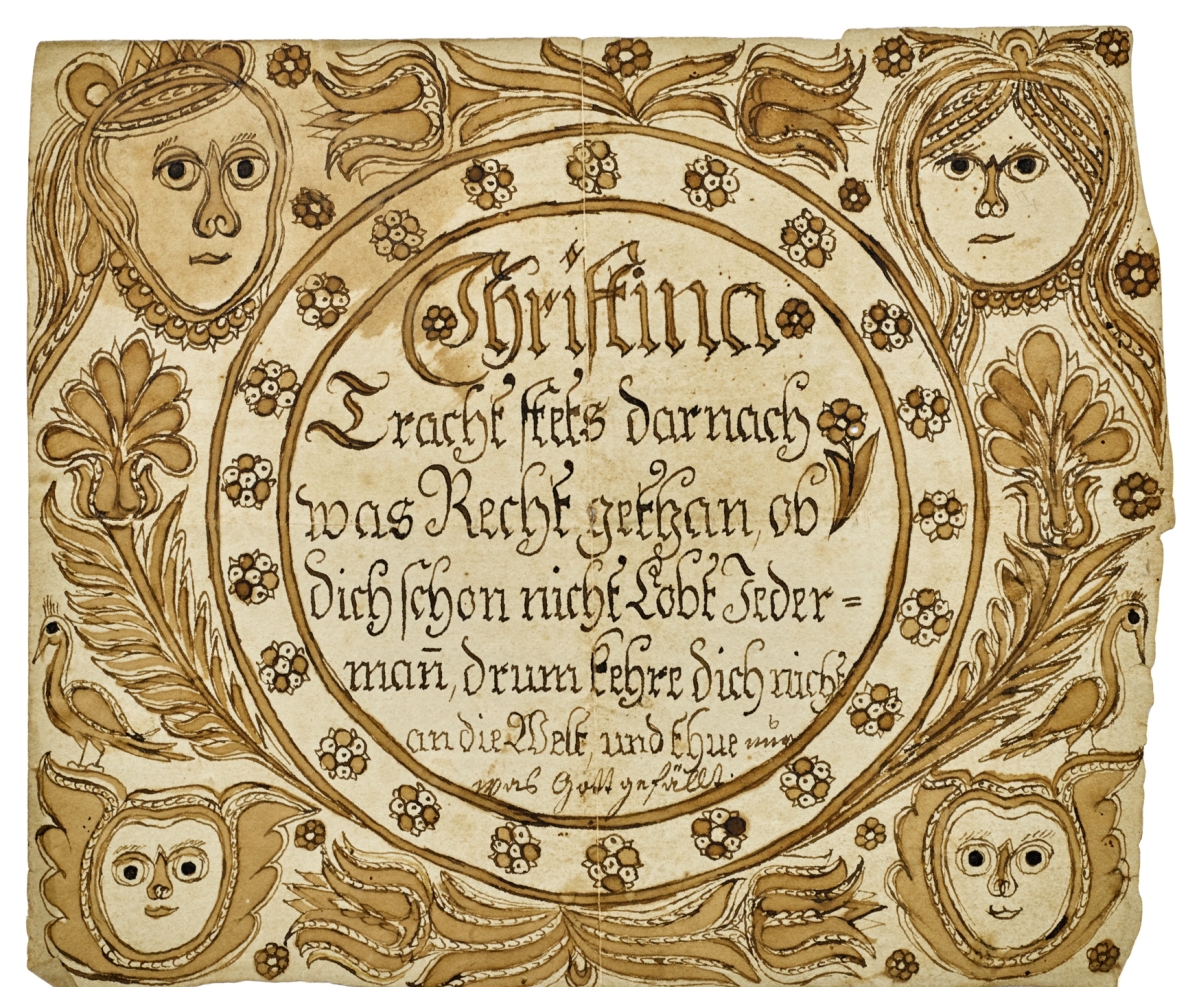 Christina
Tracht stets darnach
was Recht gethan, ob
dich schon nicht Lobt Jeder=
man̄, drum kehre dich nicht
an die Welt, und thue nur
was Gott gefällt.